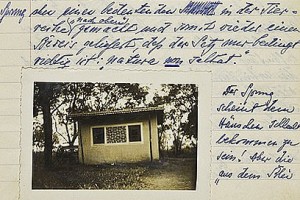 Sprung
den einen bedeutenden in der Tier-
reihe nach oben gemacht und somit wieder einen
Beweis geliefert, daß der Satz nur bedingt
richtig ist: natura non saltat.
Der Sprung
scheint dem
Häuschen
bekommen zu
sein! Aber die
"aus dem